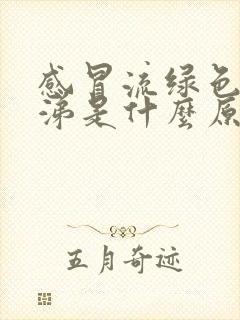 感冒流绿色
涕是什麼原
五月奇迹